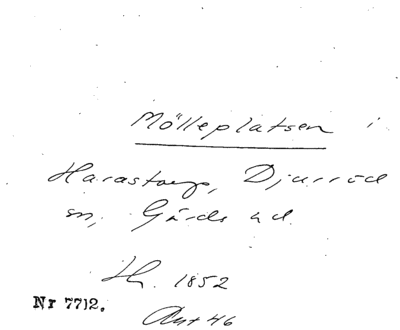 Mölleplatsen i
Harastorp, Djurröd
sn, Gärds hd.
Hs. 1852
Nr 7712.
Aut 46